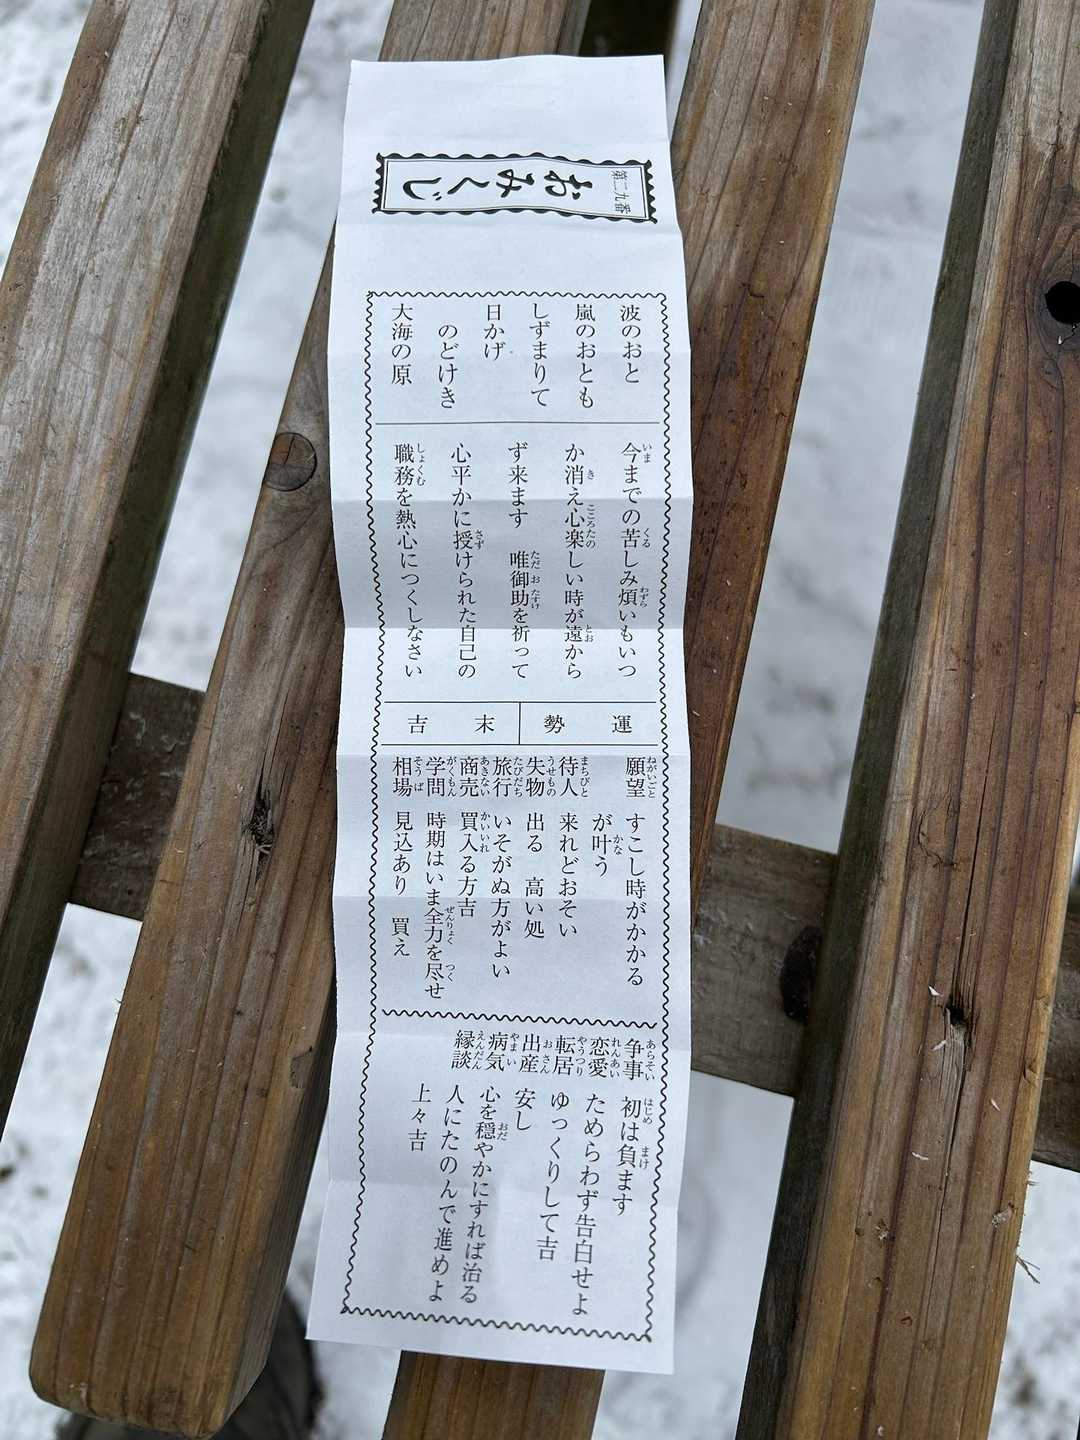 第二九番
おみくじ
波のおと
嵐のおとも
しずまりて
日かげ
のどけき
大海の原
今までの苦しみ煩いもいつ
か消え心楽しい時が遠から
ず来ます　唯御助を祈って
心平かに授けられた自己の
職務を熱心につくしなさい
運勢
末吉
願望　すこし時がかかる
が叶う
待人　来れどおそい
失物　出る　高い処
旅行　いそがぬ方がよい
商売　買入る方吉
学問　時期はいま全力を尽せ
相場　見込あり　買え
争事　初は負ます
恋愛　ためらわず告白せよ
転居　ゆっくりして吉
出産　安し
病気　心を穏やかにすれば治る
縁談　人にたのんで進めよ
上々吉